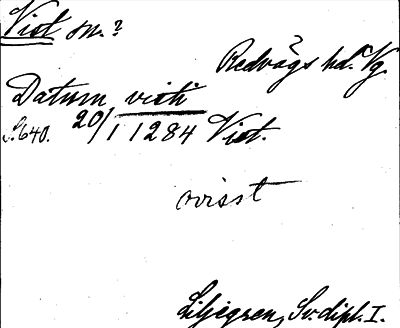 Vist sn.?
Redvägs hd. Vg.
Datum visti
S. 640. 20/1 1284 Vist.
ovisst
Liljegren, Sv. dipl. I.